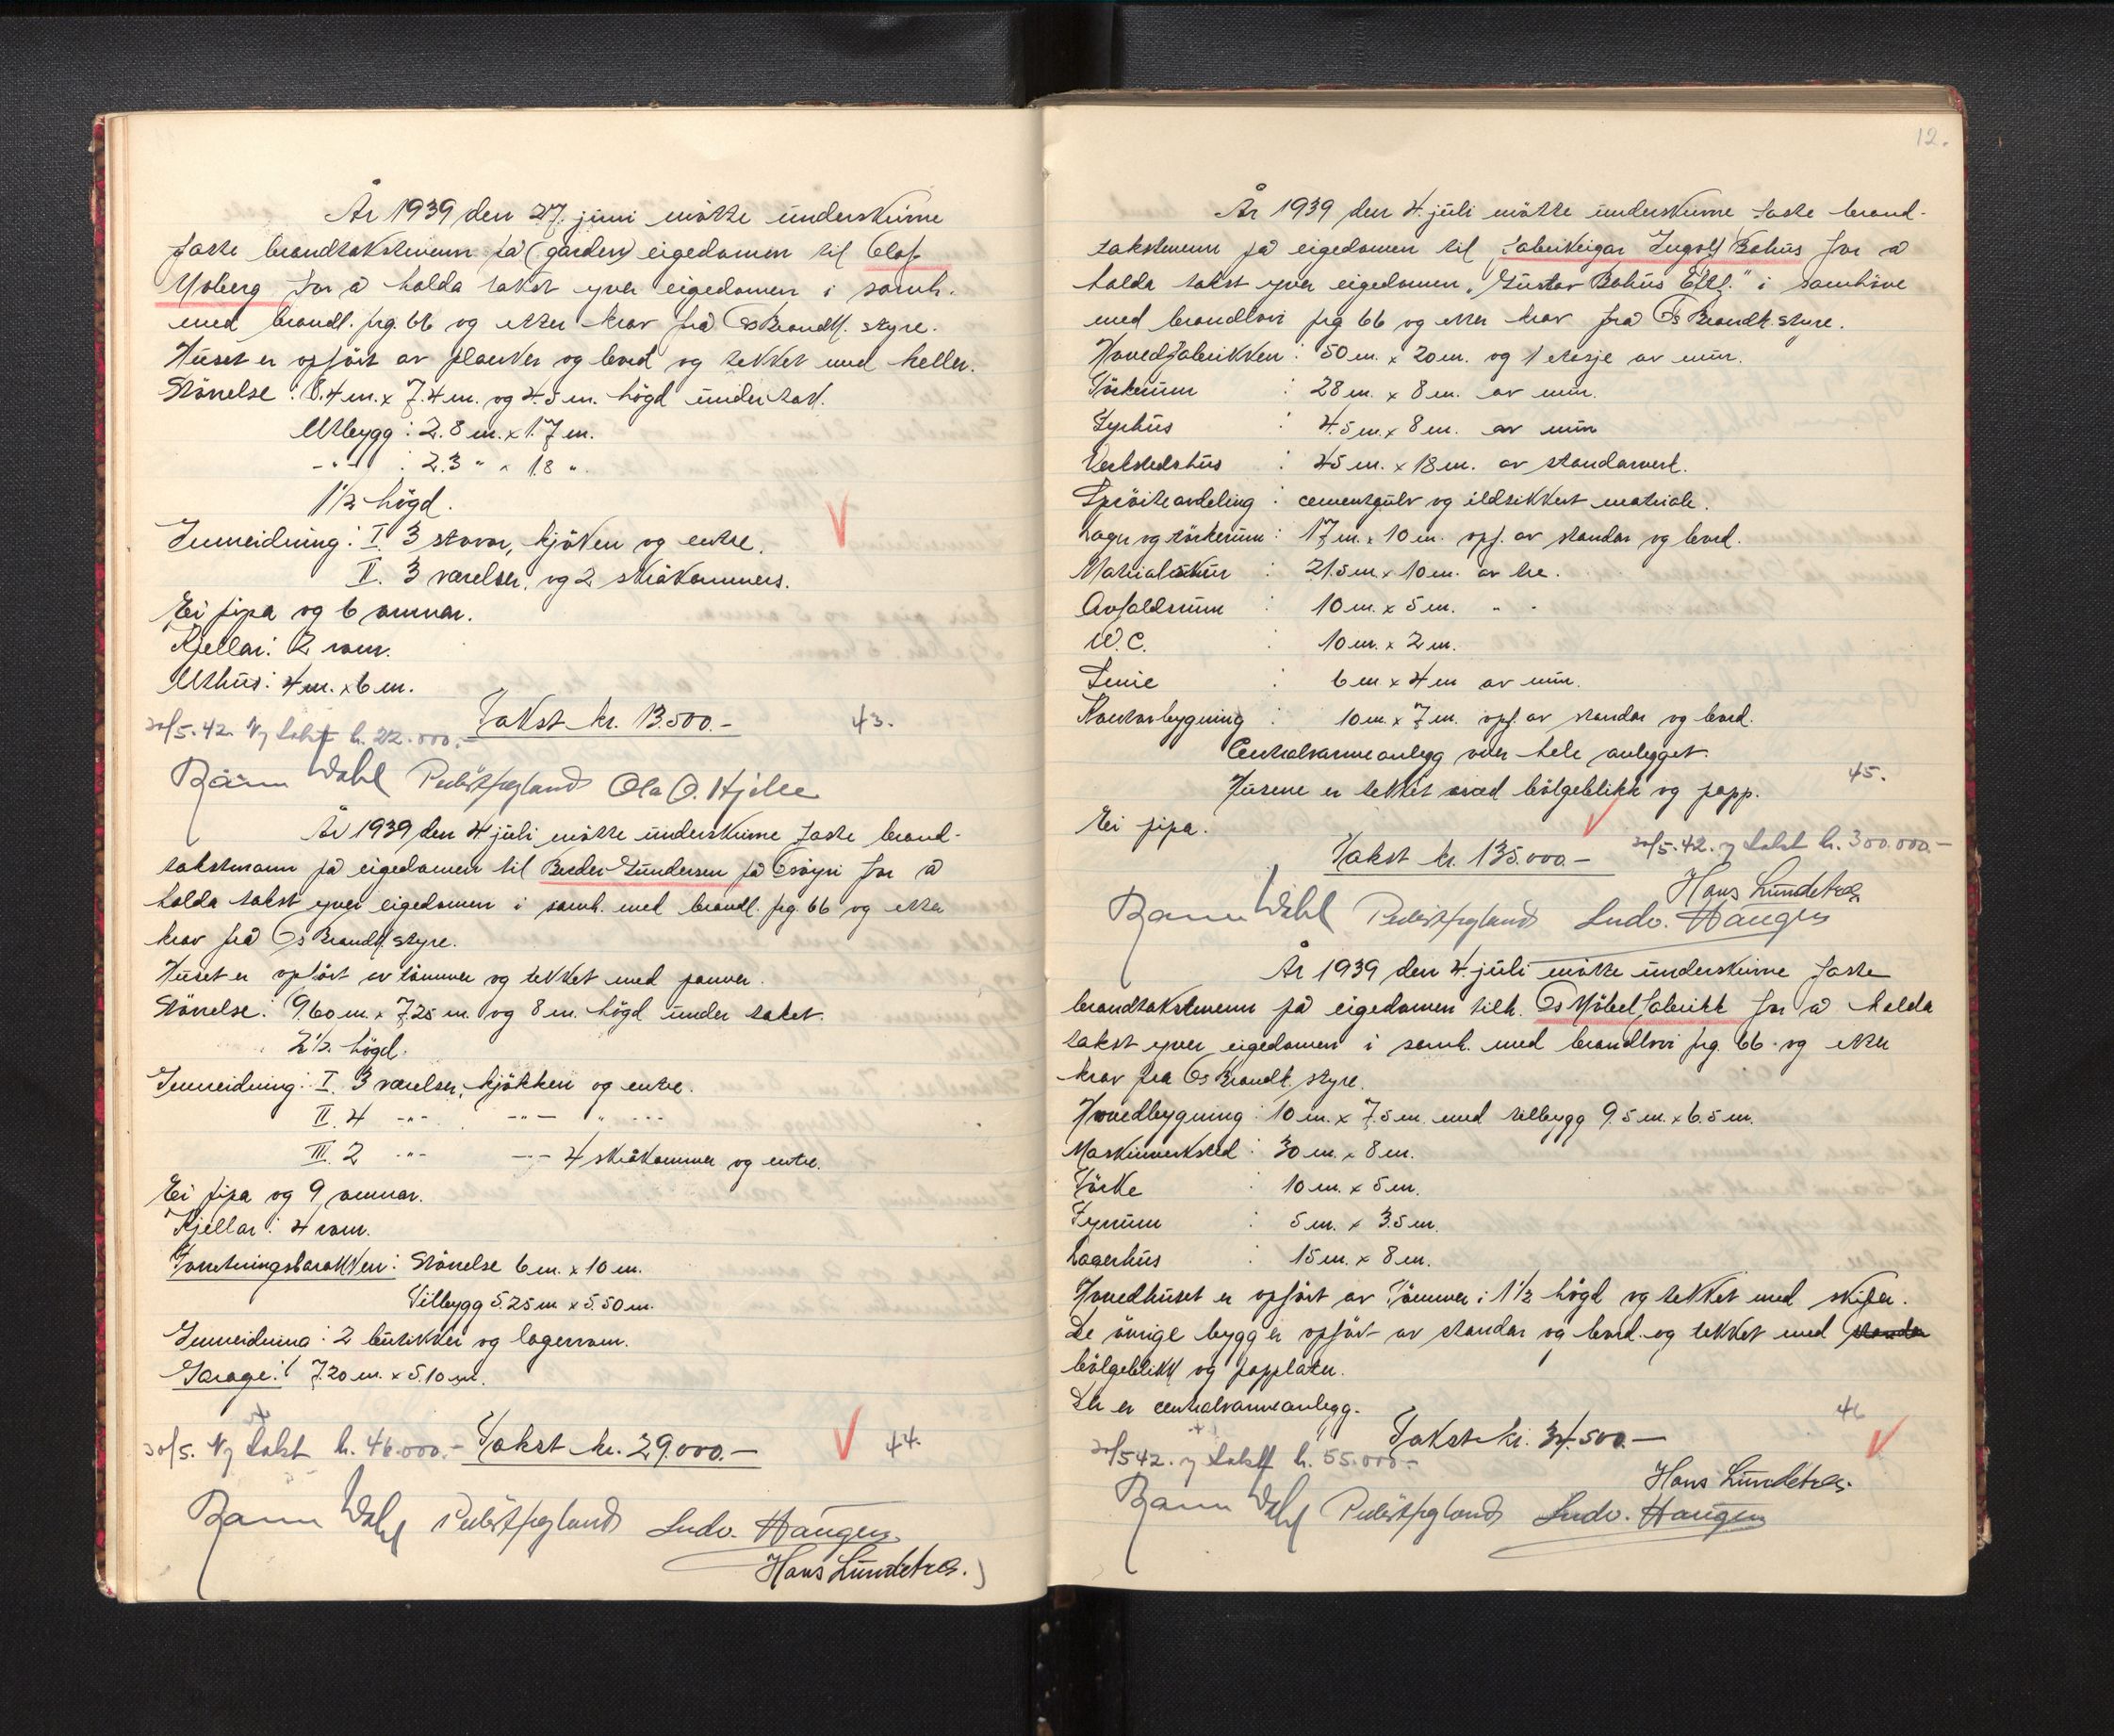 År 1939 den 27. juni møtte underskrivne
faste brandtakstmenn på (garden) eigedomen til Olaf
Moberg for å halda takst yver eigedomen i samh.
med brandl. prg. 66 og etter krav frå Os Brandk. styre.
Huset er opført av planker og bord og tekket med heller.
Størrelse: 8.4 m. x 7.4 m. og 4.5 m. högd under tak.
Utbygg: 2.8 m. x 1.7 m.
-"- : 2.3 " x 1.8 ".
1½ högd.
Innreidning: I. 3 stovor, kjöken og entre.
II. 3 værelser, og 2 skråkammers.
Ei pipa og 6 omnar.
Kjellar: 2 rom.
Uthus: 4 m. x 6 m.
30/5.42. Ny takst kr. 22.000.- Takst kr. 13.500.- 43.
Wahl Ola O. Hjelle
År 1939 den 4 juli møtte underskrivne faste brand-
takstmenn på eigedomen til Berder Gundersen på Osöyri for å
halda takst yver eigedomen i samh. med brandl. prg. 66 og etter
krav frå Os Brandk. styre.
Huset er opfört av tömmer og tekket med panner.
Störrelse: 9.60 m. x 7.25 m. og 8 m. högd under taket.
2½ högd.
Innreidning: I. 3 værelser, kjökken og entre.
II. 4 -"- -"- " -"-
III. 2 -"- -"- 4 skråkammer og entre.
Ei pipa og 9 omnar.
Kjellar: 4 rom.
Forretningsbarakken: Störrelse 6 m. x 10 m.
Tilbygg 5.25 m x 5.50 m.
Innreidning: 2 butikker og lagerrom.
Garage: 7.20 m. x 5.10 m.
30/5. Ny takst kr. 46.000.- Takst kr. 29.000.- 44.
Wahl Ludv. Haugen
Hans Lundetræ.
12.
År 1939 den 4. juli møtte underskrivne faste brand-
takstmenn på eigedomen til fabrikeigar Ingolf Bahus for å
halda takst yver eigedomen "Gustav Bahus Eftf." i samhöve
med brandlovi prg 66 og etter krav frå Os Brandk. styre.
Hovedfabrikken: 50 m. x 20 m. og 1 etasje av mur.
Törkerum : 28 m. x 8 m. av mur.
Fyrhus : 4.5 m. x 8 m. av mur
Verkstedshus : 45 m. x 18 m. av standarverk.
Spröiteavdeling : cementgulv og ildsikkert materiale.
Lager og törkerum: 17 m. x 10 m. opf. av standar og bord.
Materialskur : 21.5 m. x 10 m. av tre.
Avfaldsrum : 10 m. x 5 m. " "
W.C. : 10 m. x 2 m.
Smie : 6 m x 4 m av mur.
Kontorbygning : 10 m. x 7 m. opf. av standar og bord.
Centralvarmeanlegg over hele anlegget.
Husene er tekket med bölgeblikk og papp. 45.
Ei pipa.
Takst kr. 135.000.- 30/5.42. ny takst kr. 300.000.-
Hans Lundetræ
Wahl Ludv. Haugen
År 1939 den 4. juli møtte underskrivne faste
brandtakstmenn på eigedomen tilh. Os Möbelfabrikk for å halda
takst yver eigedomen i samh. med brandlovi prg. 66 og etter
krav fra Os Brandk. styre.
Hovedbygning: 10 m. x 7.5 m. med tilbygg 9.5 m. x 6.5 m.
Maskinverksted : 30 m. x 8 m.
Törke : 10 m. x 5 m.
Fyrrum : 5 m. x 3.5 m.
Lagerhus : 15 m. x 8 m.
Hovedhuset er opfört av Tömmer i 1½ högd og tekket med skifer.
De övrige bygg er opfört av standar og bord og tekket med standar
bölgeblikk og papplater.
De er centralvarmeanlegg.
46
Takst kr. 34.500.-
30/5 42. ny takst kr. 55.000.-
Hans Lundetræ.
Wahl Ludv. Haugen